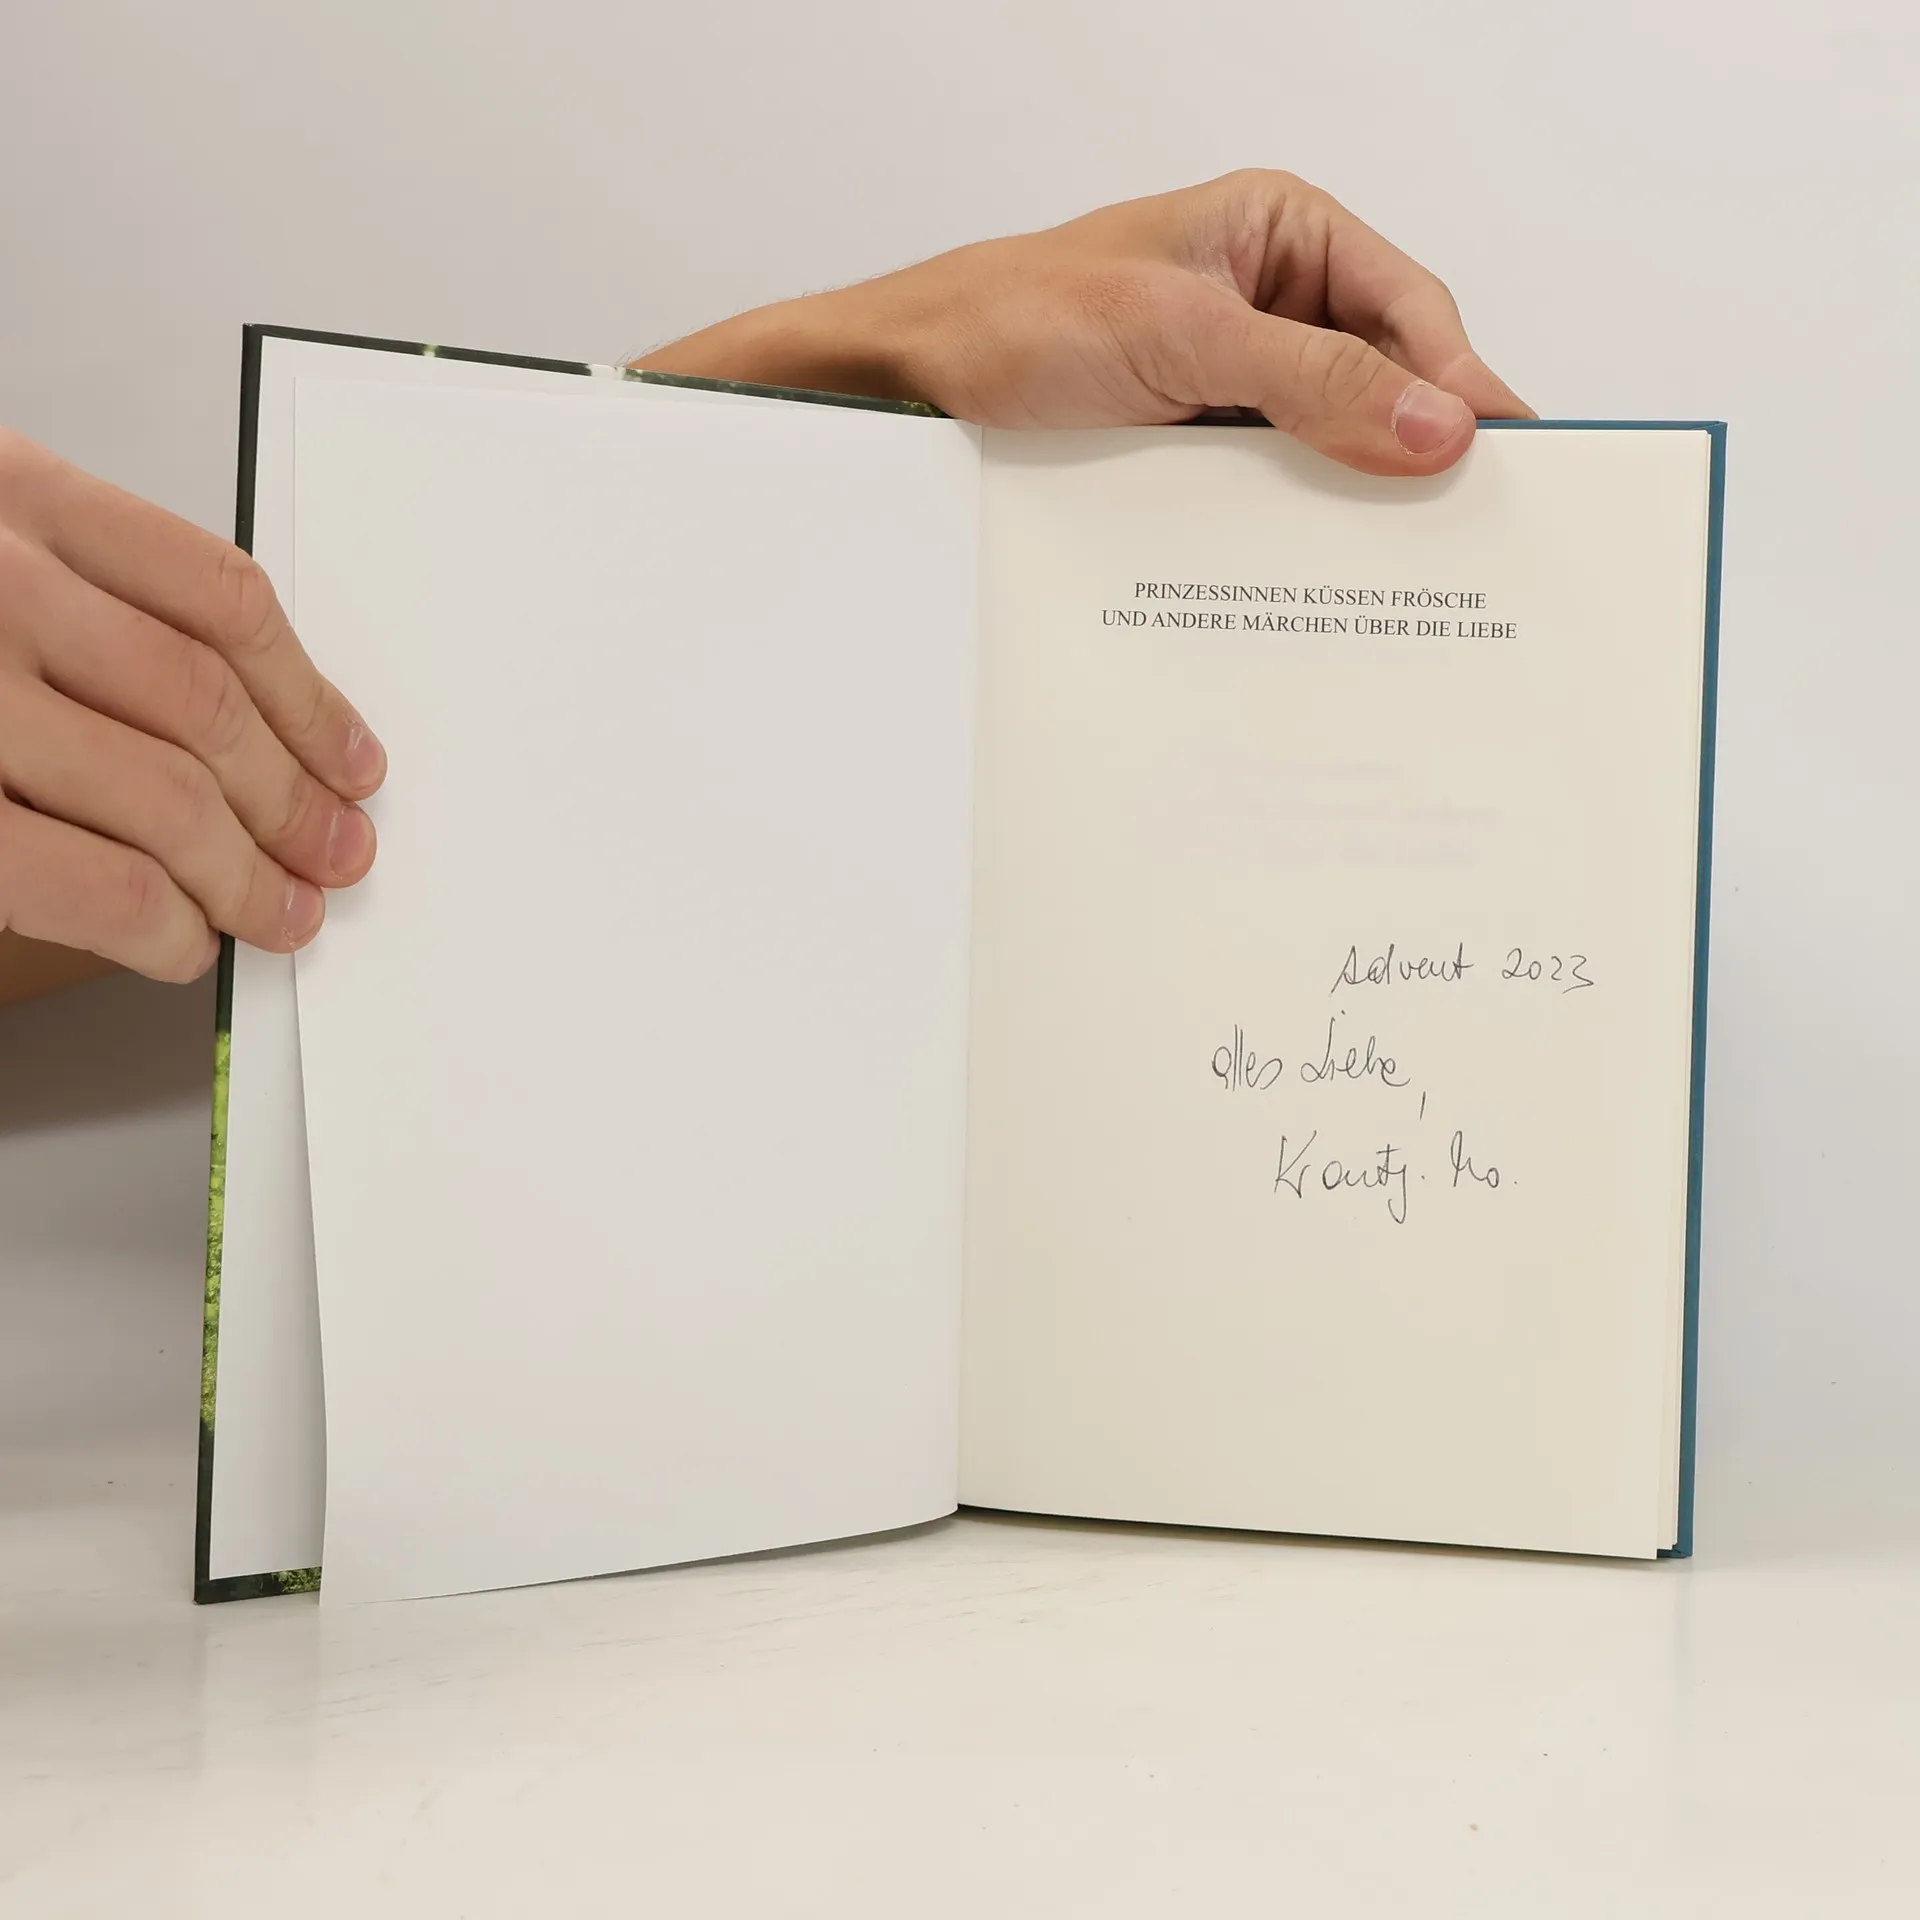 PRINZESSINNEN KÜSSEN FRÖSCHE
UND ANDERE MÄRCHEN ÜBER DIE LIEBE
Advent 2023
alles Liebe,